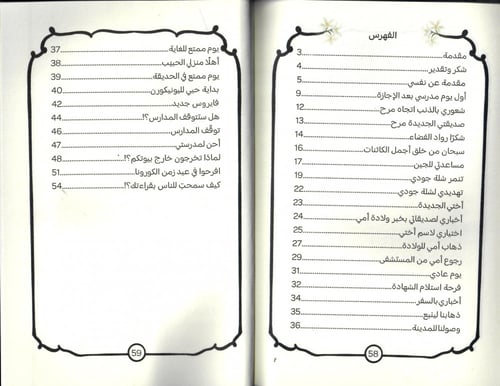 الفهرس
مقدمة............3
شكر وتقدير............4
مقدمة عن نفسي............5
أول يوم مدرسي بعد الإجازة............9
شعوري بالذنب اتجاه مرح............12
صديقتي الجديدة مرح............13
شكرًا رواد الفضاء............14
سبحان من خلق أجمل الكائنات............16
مساعدتي للجين............17
تنمر شلة جودي............19
تهديدي لشلة جودي............22
أختي الجديدة............23
أخباري لصديقاتي بخبر ولادة أمي............24
اختياري لاسم أختي............25
ذهاب أمي للولادة............27
رجوع أمي من المستشفى............29
يوم عادي............31
فرحة استلام الشهادة............32
أخباري بالسفر............34
ذهابنا لينبع............35
وصولنا للمدينة............36
58
يوم ممتع للغاية............37
أهلًا منزلي الحبيب............38
يوم ممتع في الحديقة............39
بداية حبي لليونيكورن............40
فايروس جديد............42
هل ستتوقف المدارس؟!............44
توقف المدارس............46
أحن لمدرستي............47
لماذا تخرجون خارج بيوتكم؟!............48
افرحوا في عيد زمن الكورونا............51
كيف سمحت للناس بقراءتك؟!............54
59